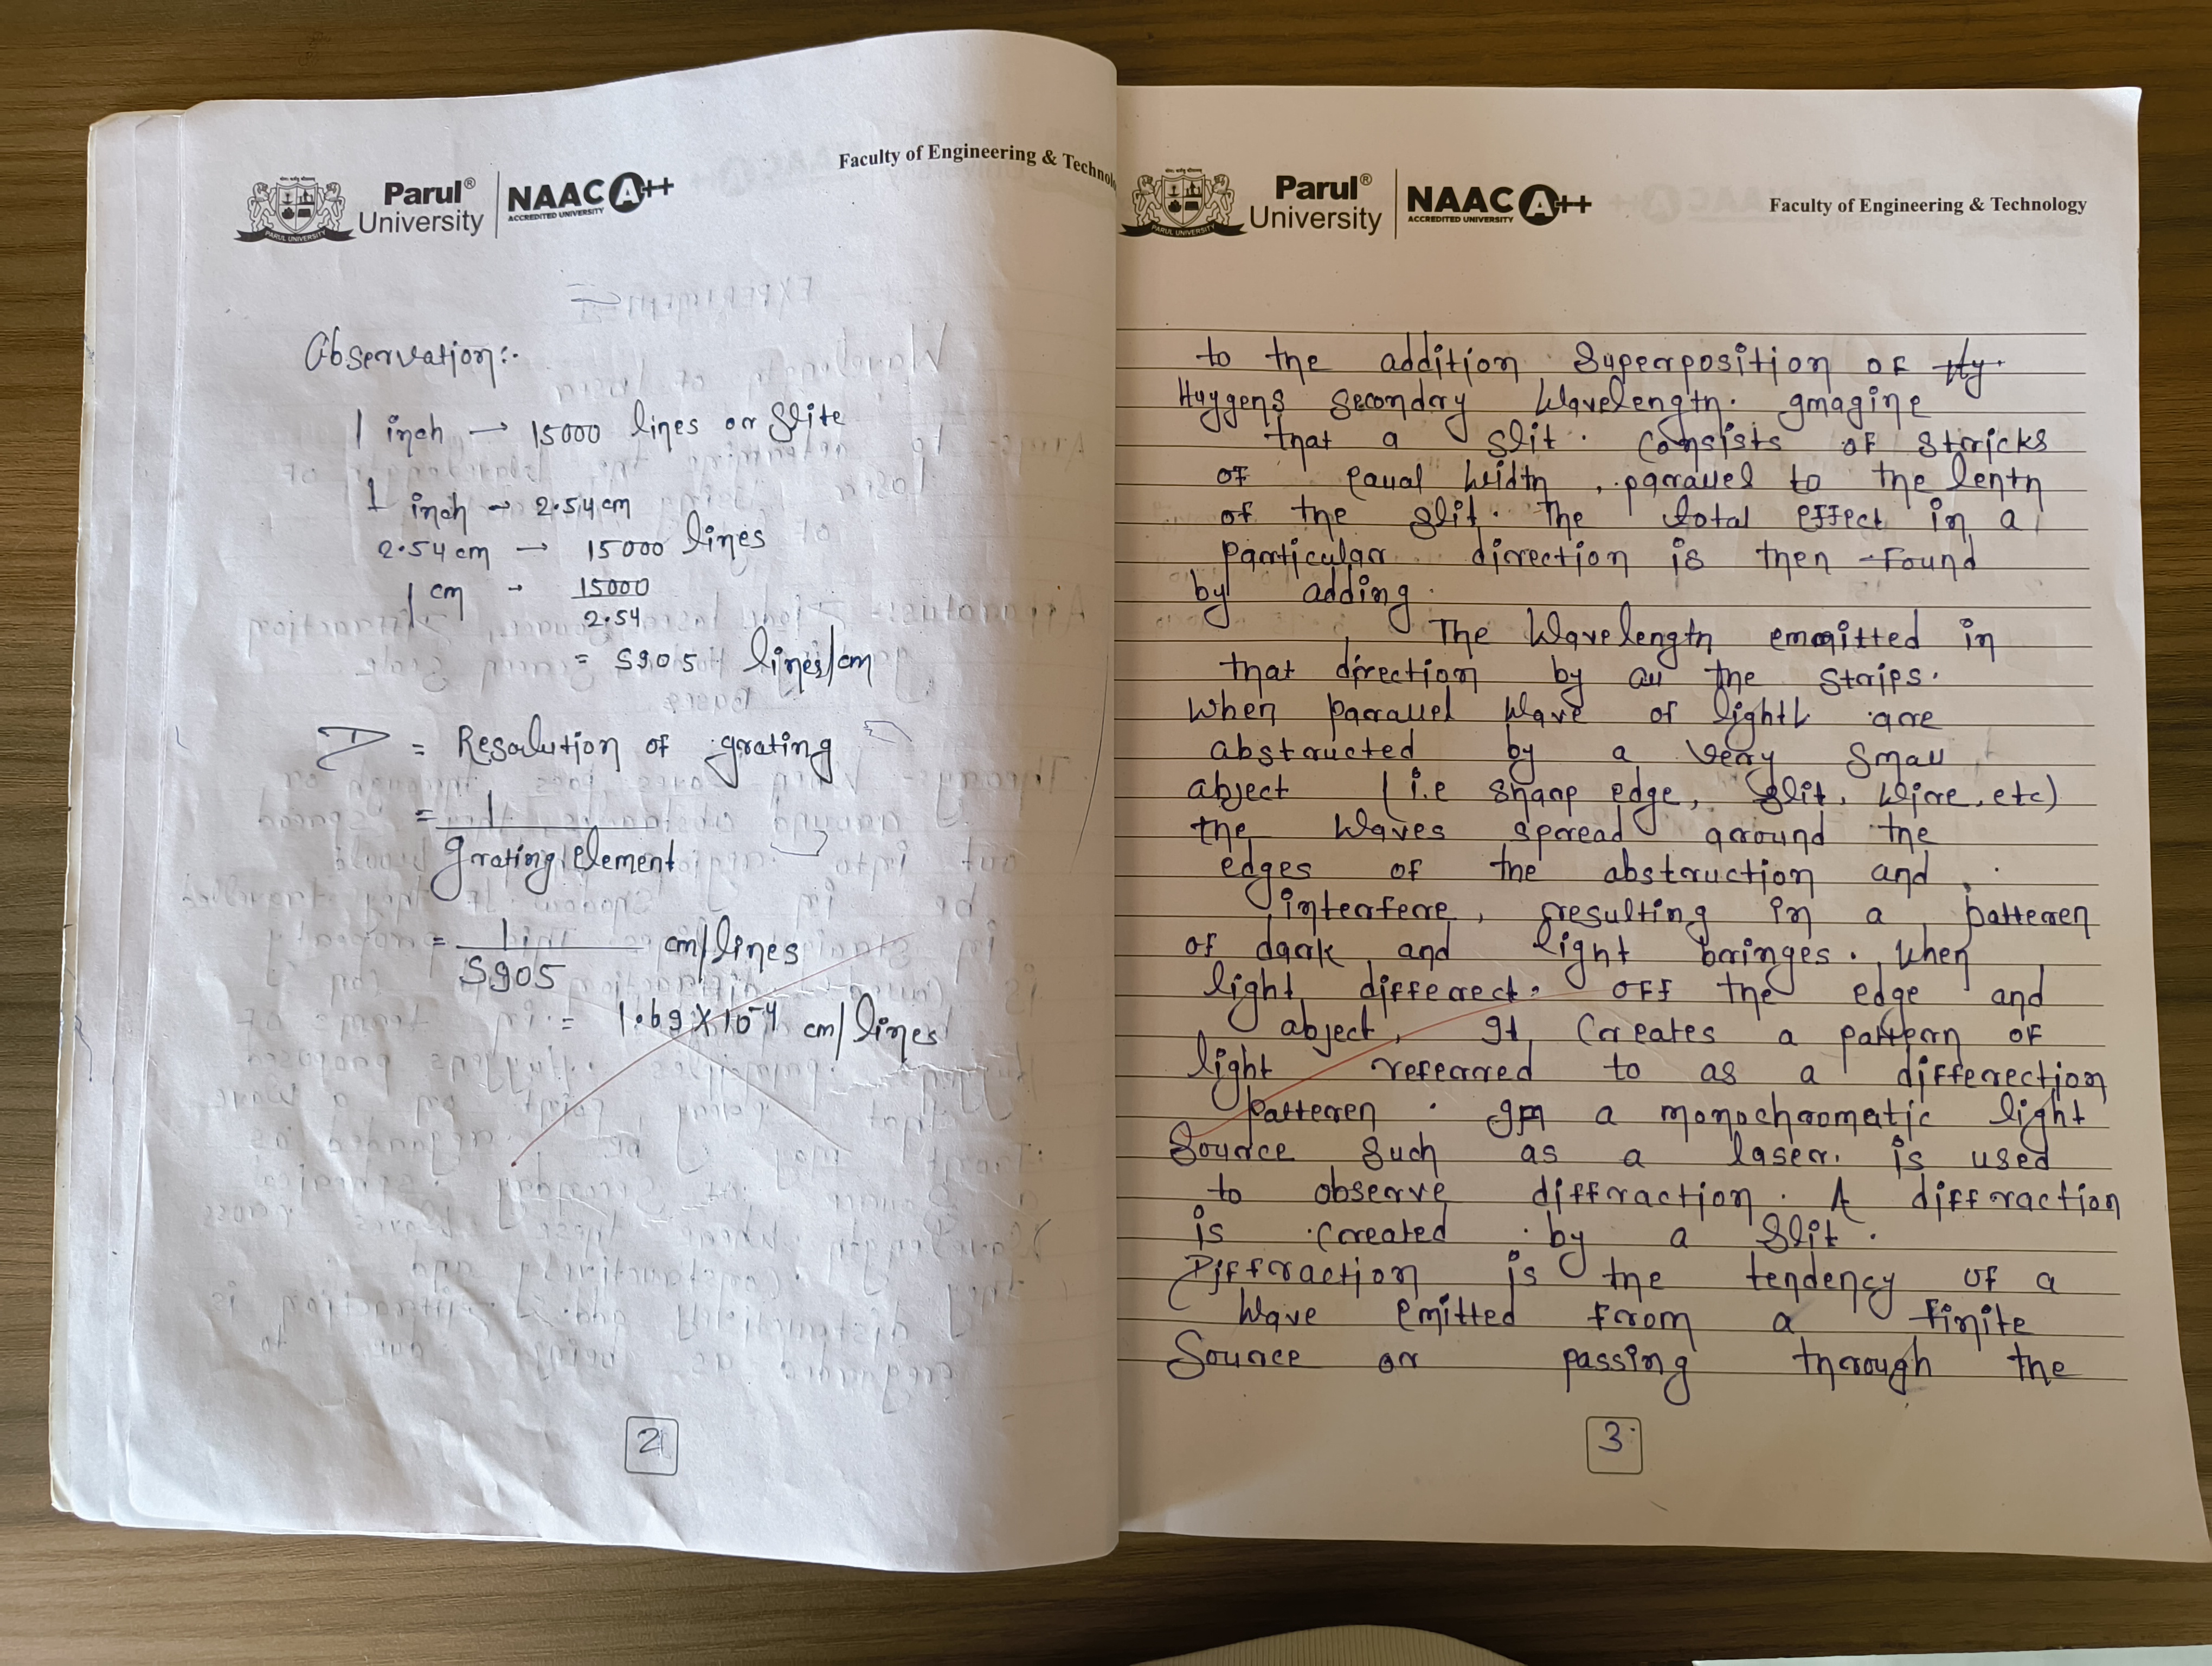 Parul® University
NAAC A++
ACCREDITED UNIVERSITY
PARUL UNIVERSITY
Faculty of Engineering & Technolo
Observation:-
1 inch → 15000 lines or Slite
1 inch → 2.54 cm
2.54 cm → 15000 lines
1 cm → 15000
2.54
= 5905 lines/cm
D = Resolution of grating
= 1
grating element
= 1
5905 cm/lines
= 1.69 X 10⁻⁴ cm/lines
2
Parul® University
NAAC A++
ACCREDITED UNIVERSITY
PARUL UNIVERSITY
Faculty of Engineering & Technology
to the addition Superposition of
Huygens Secondry Wavelength. Imagine
that a slit. Consists of Stricks
of equal width, parallel to the lenth
of the slit. The total effect in a
particular direction is then found
by adding.
The Wavelength emmitted in
that direction by all the Strips.
When parallel Wave of light are
abstructed by a very small
abject (i.e sharp edge, slit, Wire, etc)
the Waves spread around the
edges of the abstruction and
interfere, resulting in a patteren
of dark and light bringes. When
light differect. Off the edge and
abject, It Creates a pattern of
light referred to as a differection
patteren. In a monochromatic light
Source Such as a laser. is used
to observe diffraction. A diffraction
is Created by a Slit.
Diffraction is the tendency of a
Wave emitted from a finite
Source or passing through the
3